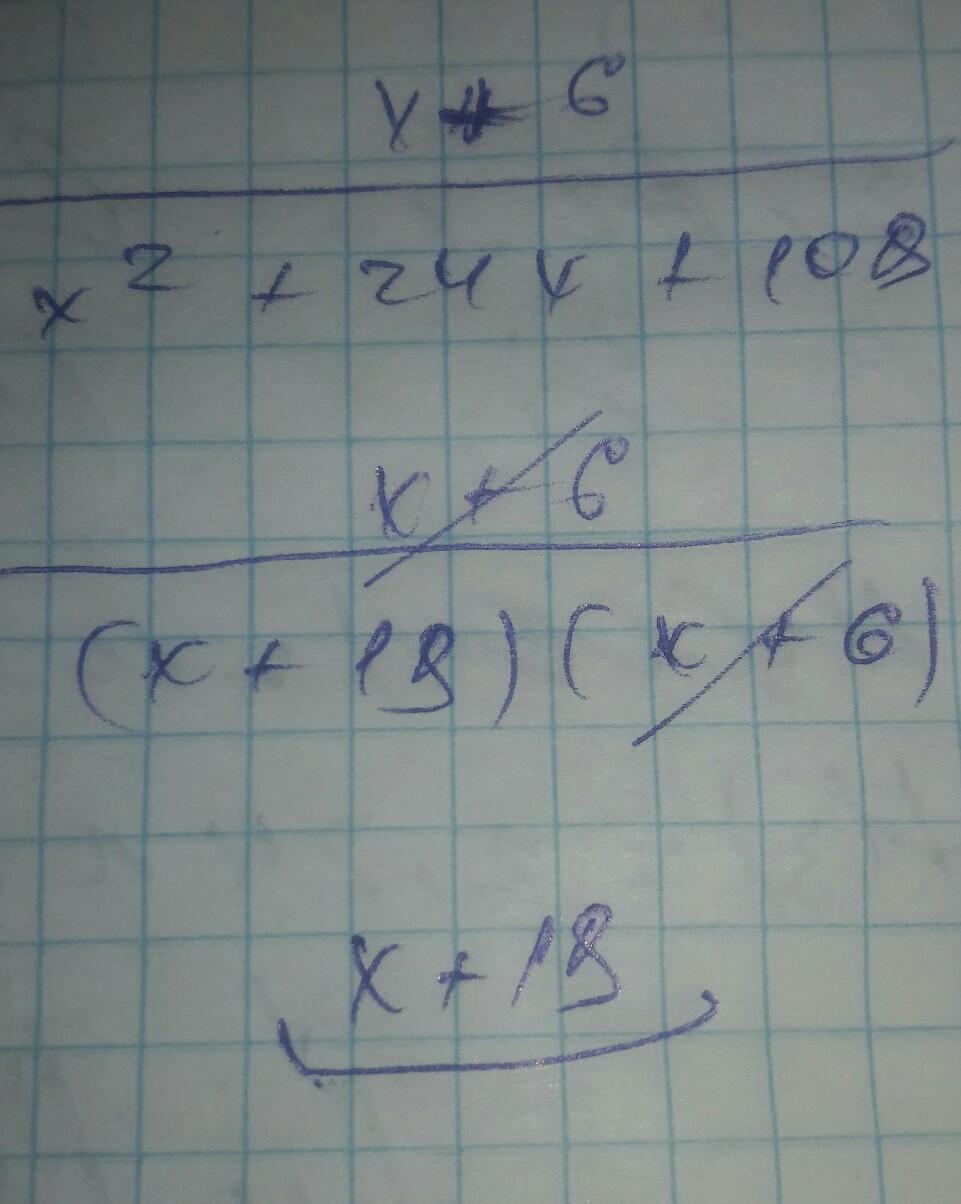 x + 6
x² + 24x + 108
x + 6
(x + 18)(x + 6)
x + 18